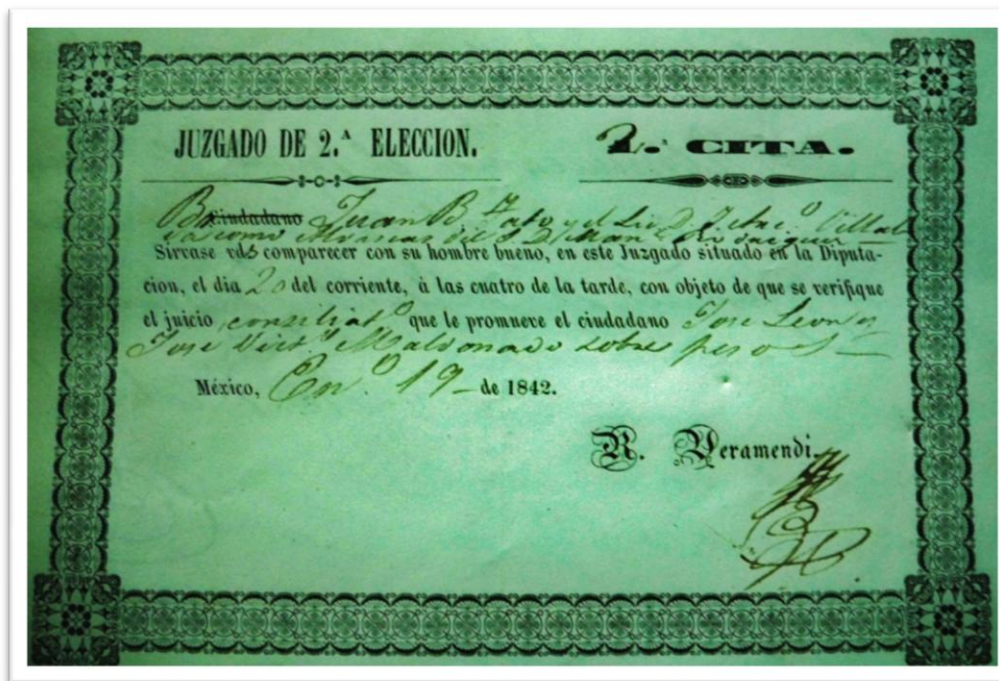 JUZGADO DE 2.ª ELECCION.
2.ª CITA.
Ciudadano Juan B.
Sírvase vds comparecer con su hombre bueno, en este Juzgado situado en la Diputa-
cion, el dia 20 del corriente, á las cuatro de la tarde, con objeto de que se verifique
el juicio que le promueve el ciudadano Jose Leon
Jose Maldonado sobre pesos
México, En.º 19 de 1842.
R. Veramendi.